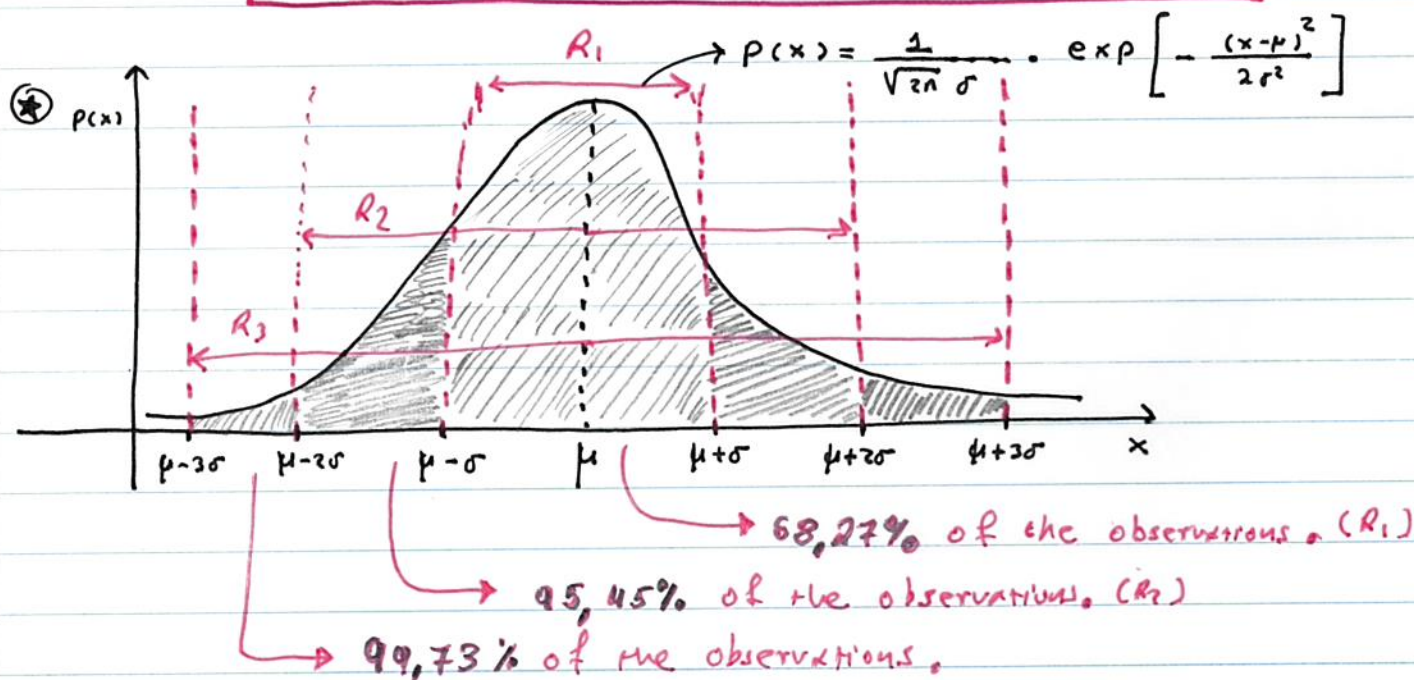 R₁
p(x) = 1/(√2π σ) · exp[-(x-μ)²/2σ²]
p(x)
R2
R3
μ-3σ μ-2σ μ-σ μ μ+σ μ+2σ μ+3σ x
68,27% of the observations. (R₁)
95,45% of the observations. (R₂)
99,73% of the observations.